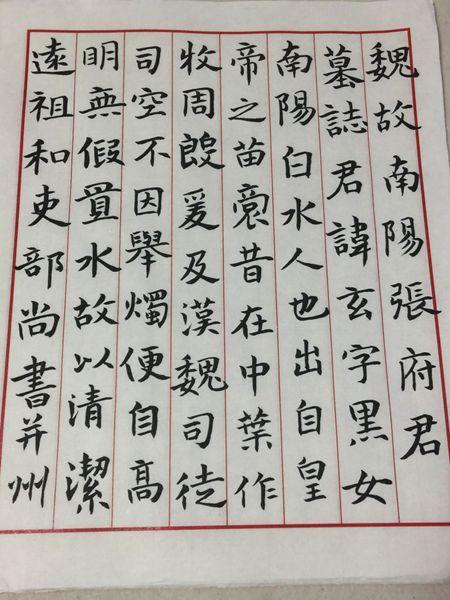 魏故南陽張府君
墓誌君諱玄字黑女
南陽白水人也出自皇
帝之苗裔昔在中葉作
牧周殷爰及漢魏司徒
司空不因舉燭便自高
明無假置水故以清潔
遠祖和吏部尚書并州